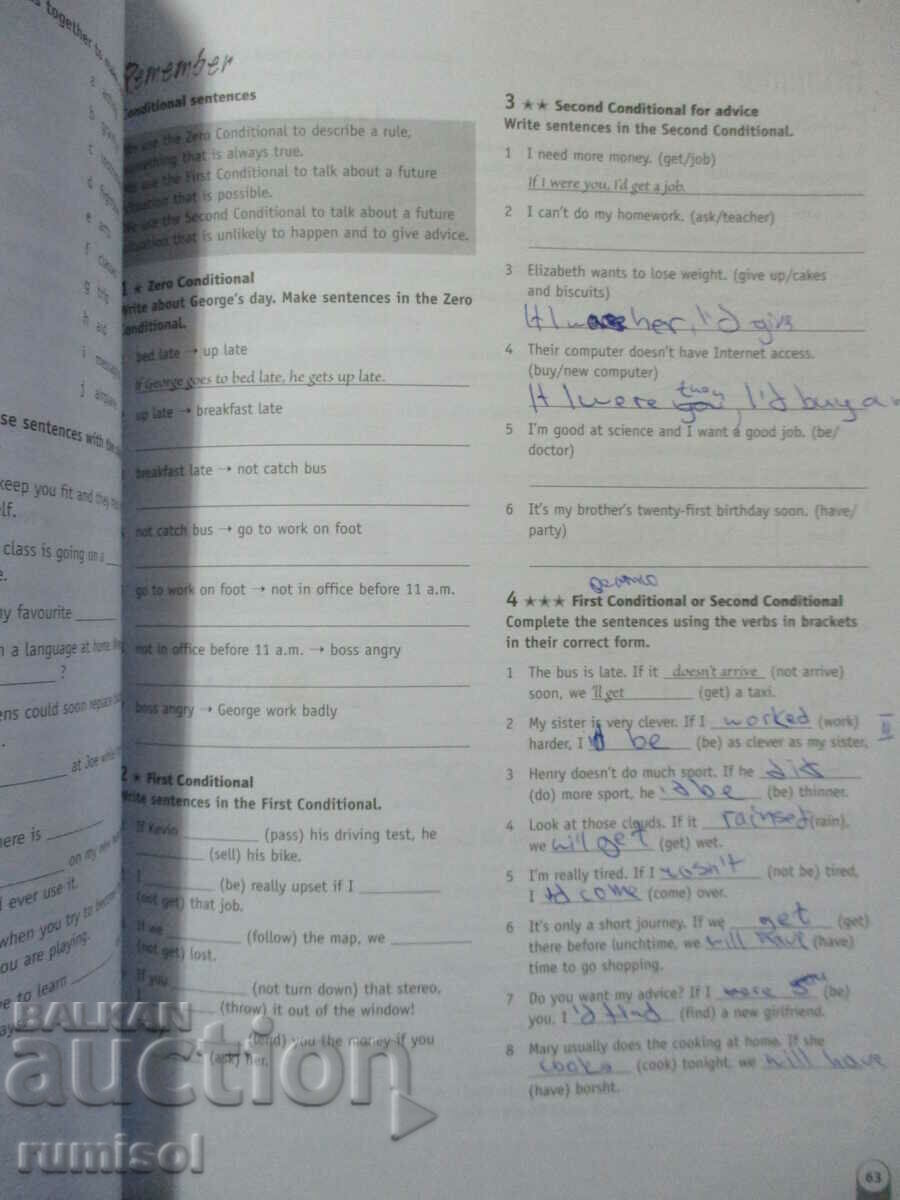 together to
Remember
Conditional sentences
We use the Zero Conditional to describe a rule,
something that is always true.
We use the First Conditional to talk about a future
situation that is possible.
We use the Second Conditional to talk about a future
situation that is unlikely to happen and to give advice.
1 ★ Zero Conditional
Write about George's day. Make sentences in the Zero
Conditional.
bed late → up late
If George goes to bed late, he gets up late.
up late → breakfast late
breakfast late → not catch bus
not catch bus → go to work on foot
go to work on foot → not in office before 11 a.m.
not in office before 11 a.m. → boss angry
boss angry → George work badly
2 ★ First Conditional
Write sentences in the First Conditional.
If Kevin (pass) his driving test, he
(sell) his bike.
I (be) really upset if I
(not get) that job.
If we (follow) the map, we
(not get) lost.
If you (not turn down) that stereo,
I (throw) it out of the window!
(lend) you the money if you
(ask) her.
3 ★★ Second Conditional for advice
Write sentences in the Second Conditional.
1 I need more money. (get/job)
If I were you, I'd get a job.
2 I can't do my homework. (ask/teacher)
3 Elizabeth wants to lose weight. (give up/cakes
and biscuits)
If I was her, I'd give
4 Their computer doesn't have Internet access.
(buy/new computer)
they
If I were you, I'd buy a
5 I'm good at science and I want a good job. (be/
doctor)
6 It's my brother's twenty-first birthday soon. (have/
party)
4 ★★★ First Conditional or Second Conditional
Complete the sentences using the verbs in brackets
in their correct form.
1 The bus is late. If it doesn't arrive (not arrive)
soon, we 'll get (get) a taxi.
2 My sister is very clever. If I worked (work) II
harder, I 'd be (be) as clever as my sister.
3 Henry doesn't do much sport. If he did
(do) more sport, he 'd be (be) thinner.
4 Look at those clouds. If it (rain),
we get (get) wet.
5 I'm really tired. If I wasn't (not be) tired,
I 'd come (come) over.
6 It's only a short journey. If we get (get)
there before lunchtime, we will have (have)
time to go shopping.
7 Do you want my advice? If I were you (be)
you, I 'd find (find) a new girlfriend.
8 Mary usually does the cooking at home. If she
cooks (cook) tonight, we will have
(have) borsht.
63
a
b
c
d
e
f
g big
h aid
i
j
se sentences with the
keep you fit and they
lf.
class is going on a
e.
ny favourite
n a language at home.
?
ens could soon replace
at Joe
here is
on my new
I ever use it.
when you try to become
ou are playing.
e to learn
BALKAN
auction
rumisol